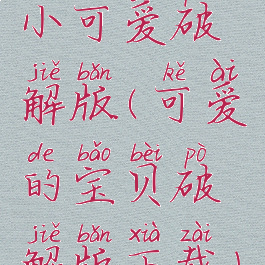 小可爱破
jiě bǎn kě ài
解版(可爱
de bǎo bèi pò
的宝贝破
jiě bǎn xià zài
解版下载)